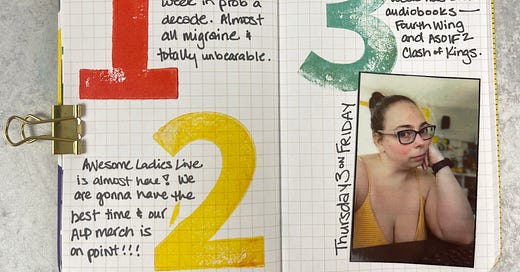 1
week in prob a
decade. Almost
all migraine &
totally unbearable.
2
Awesome Ladies Live
is almost here! We
are gonna have the
best time & our
ALP merch is
on point!!!
3
audiobooks —
Fourth Wing
and ASOIF 2
Clash of Kings.
Thursday 3 ON FRIDAY